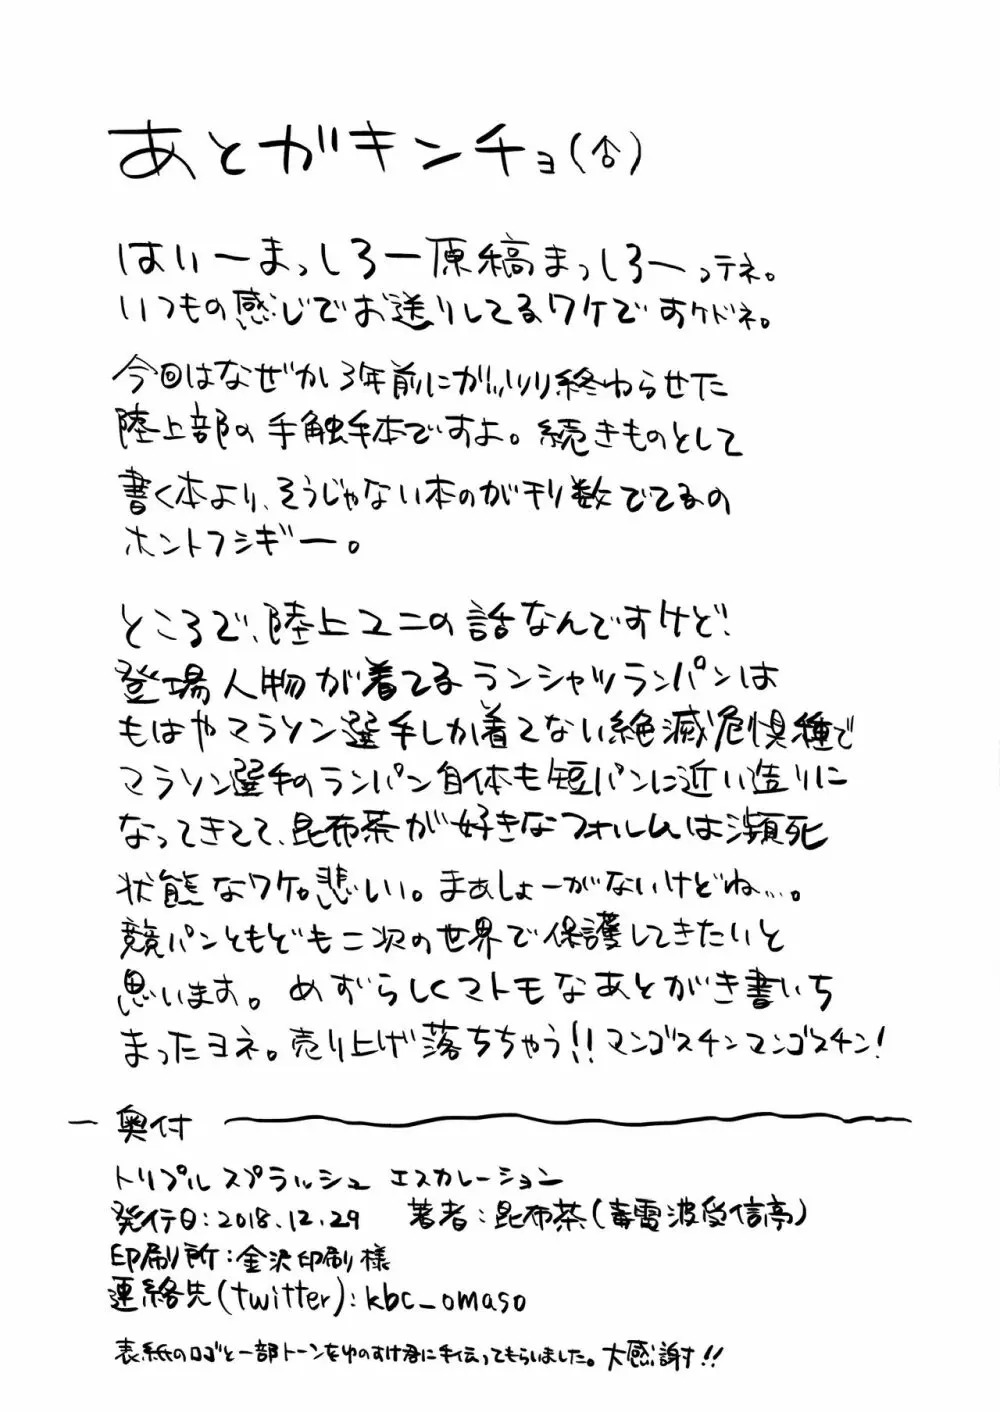 あとがキンチョ(↑)
はいーまっしろー原稿まっしろーってネ。
いつもの感じでお送りしてるワケですケドネ。
今回はなぜか3年前にガッツリ終わらせた
陸上部の手触手本ですよ。続きものとして
書く本より、そうじゃない本のが刊数でてるの
ホントフシギー。
ところで、陸上ユニの話なんですけど!
登場人物が着てるランシャツランパンは
もはやマラソン選手しか着てない絶滅危惧種で
マラソン選手のランパン自体も短パンに近い造りに
なってきてて、昆布茶が好きなフォルムは瀕死
状態なワケ。悲しい。まぁしょーがないけどね…。
競パンともども二次の世界で保護してきたいと
思います。めずらしくマトモなあとがき書いち
まったヨネ。売り上げ落ちちゃう!!マンゴスチンマンゴスチン!
奥付
トリプル スプラッシュ エスカレーション
発行日:2018.12.29 著者:昆布茶(毒電波受信亭)
印刷所:金沢印刷様
連絡先(twitter):kbc_omaso
表紙のロゴと一部トーンをゆのすけ君に手伝ってもらいました。大感謝!!